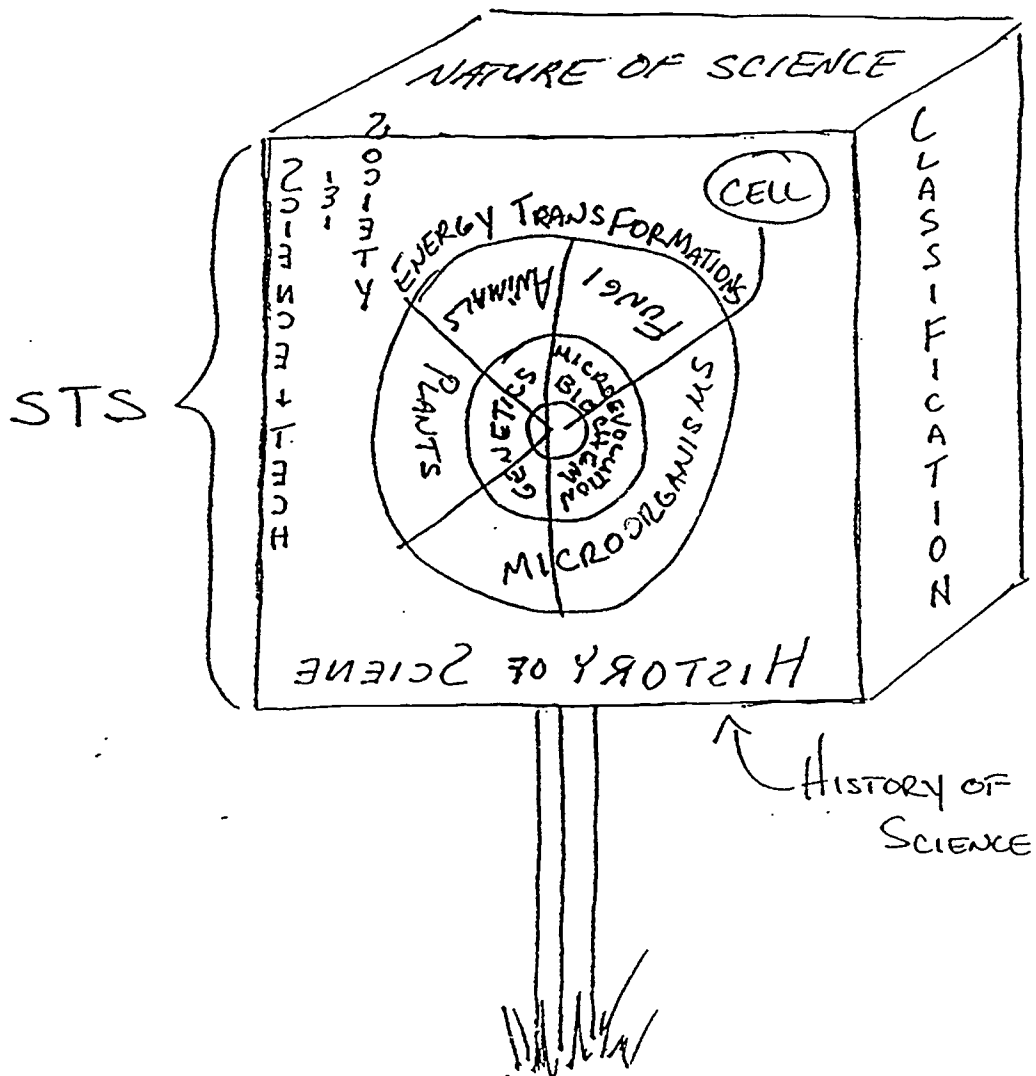 NATURE OF SCIENCE
CLASSIFICATION
SCIENCE + TECH
&
SOCIETY
CELL
ENERGY TRANSFORMATIONS
ANIMALS
FUNGI
PLANTS
MICROORGANISMS
GENETICS
MICROEVOLUTION
BIOCHEM
STS
HISTORY OF SCIENE
HISTORY OF
SCIENCE